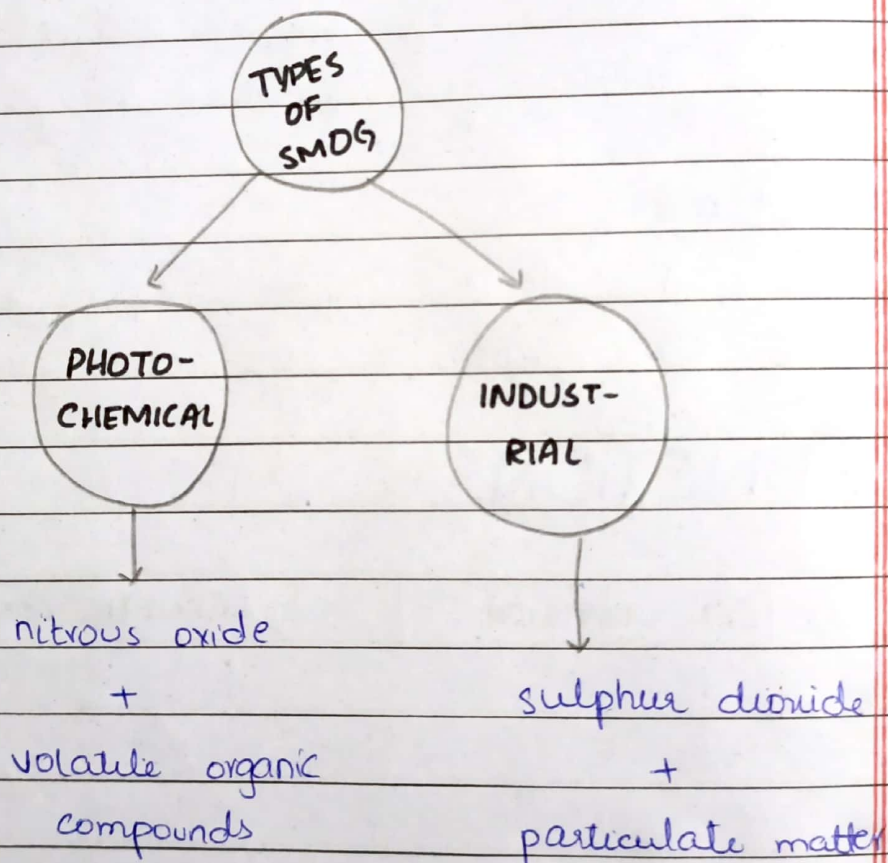 TYPES
OF
SMOG
PHOTO-
CHEMICAL
INDUST-
RIAL
nitrous oxide
+
volatile organic
compounds
sulphur dioxide
+
particulate matter